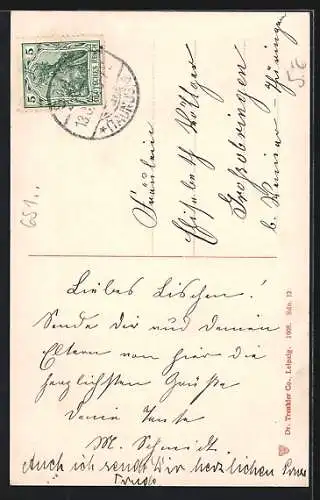 5
DEUTSCHES REICH
5
(TAUNUS)
651..
5.-
Fräulein
Elisabeth Böttger
Grossobringen
b. Weimar - Thüringen
Liebes Lischen!
Sende Dir und Deinen
Eltern von hier die
herzlichsten Grüße
Deine Tante
M. Schmidt.
Auch ich sende Dir herzlichen
Dr. Trenkler Co., Leipzig. 1908. Sdn. 12